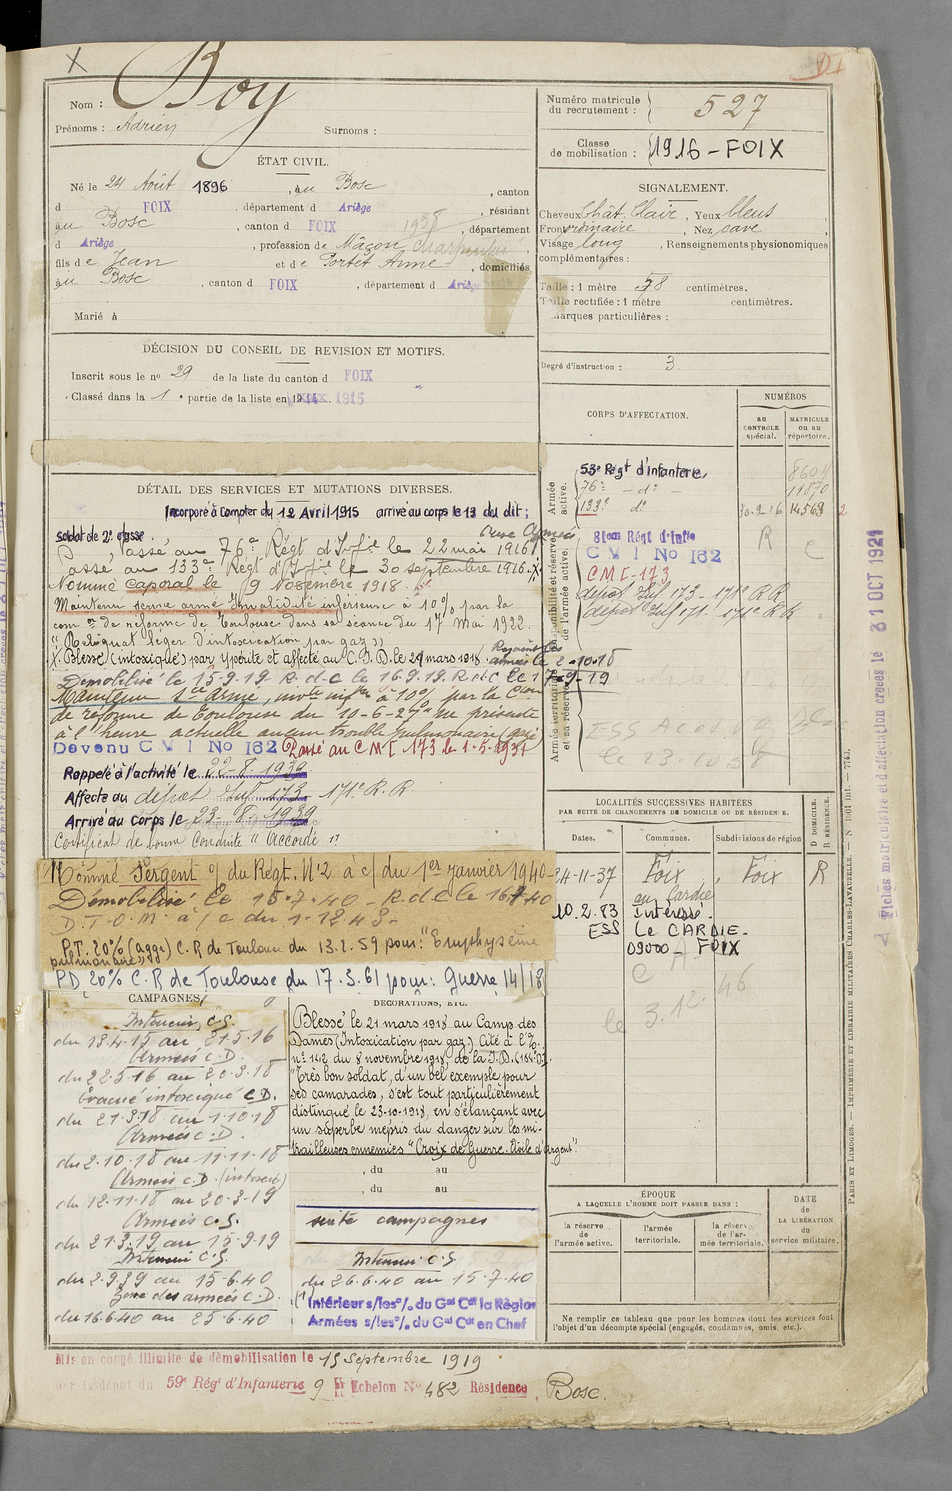 X
Nom : Boy
Prénoms : Adrien Surnoms :
Numéro matricule du recrutement : 527
Classe de mobilisation : 1916 - FOIX
ÉTAT CIVIL.
Né le 24 Août 1896 , au Bosc , canton
d FOIX , département d Ariège , résidant
au Bosc , canton d FOIX 1938 , département
d Ariège , profession de Maçon Charpentier ,
fils de Jean et de Portet Anne , domiciliés
au Bosc , canton d FOIX , département d Ariège
Marié à
SIGNALEMENT.
Cheveux Chât. Clair , Yeux bleus
Front ordinaire , Nez cave
Visage long , Renseignements physionomiques
complémentaires :
Taille : 1 mètre 58 centimètres.
Taille rectifiée : 1 mètre centimètres.
Marques particulières :
Degré d'instruction : 3
DÉCISION DU CONSEIL DE REVISION ET MOTIFS.
Inscrit sous le no 29 de la liste du canton d FOIX
Classé dans la 1 e partie de la liste en 1915
CORPS D'AFFECTATION.
NUMÉROS
AU CONTRÔLE spécial.
MATRICULE ou au répertoire.
Armée active.
53e Régt d'infanterie,
76e - do -
133e do 30-9-16 14563
81em Régt d'Infie R C
C V I No 162
CMI-173
dépot Inf 173 - 171e R.R
dépot Inf 171 - 171e R.R
ESS
le 23.10.58
DÉTAIL DES SERVICES ET MUTATIONS DIVERSES.
Incorporé à compter du 12 Avril 1915 arrivé au corps le 13 du dit ;
soldat de 2e classe.
Passé au 76e Régt d'Infie le 22 mai 1916
Passé au 133e Régt d'Infie le 30 septembre 1916. X
Nommé caporal le 9 Novembre 1918
Maintenu service armé Invalidité inférieure à 10% par la
com on de réforme de Toulouse dans sa séance du 17 Mai 1922.
"Reliquat léger d'intoxication par gaz"
X Blessé (intoxiqué) par ypérite et affecté au C.I.D. le 21 mars 1918. Rejoint les armées le 2-10-18
Démobilisé le 15-9-19 R.d.c le 16.9.19. R.d.c le 17-9-19
Maintenu Sce Armé, invté infre à 10% par la Cion
de réforme de Toulouse du 10-6-27 "ne présente
à l'heure actuelle aucun trouble pulmonaire (gazé
Devenu C V I No 162 Passé au C M I 173 le 1-5-1931
Rappelé à l'activité le 22-8-1939
Affecté au dépot Inf 173 171e R.R.
Arrivé au Corps le 23-8-1939
Certificat de bonne Conduite "Accordé"
Nommé Sergent of du Régt. No 2 à c/ du 1er janvier 1940
Démobilisé le 15.7.40 - R.d.c le 16.7.40
D.T.O.M. à/c du 1-12.43-
P.T. 20% (aggr) C.R de Toulouse du 13.2.59 pour : "Emphysème
pulmonaire"
PD 20% C.R de Toulouse du 17.3.61 pour : Guerre 14/18
LOCALITÉS SUCCESSIVES HABITÉES
PAR SUITE DE CHANGEMENTS DE DOMICILE OU DE RÉSIDENCE.
Dates. Communes. Subdivisions de région
D DOMICILE. R RÉSIDENCE.
24-11-37 Foix , Foix R
au Cardié
10.2.83 Intéressé
ESS Le CARDIE-
09000 - FOIX
C A
le 3.12.46
CAMPAGNES
Intérieur C.S.
du 13.4.15 au 21.5.16
Armées C.D.
du 22.5.16 au 20.3.18
Evacué intoxiqué C.D.
du 21.3.18 au 1.10.18
Armées C.D.
du 2.10.18 au 11.11.18
Armées C.D. (intoxiqué)
du 12.11.18 au 20.3.19
Armées C.S.
du 21.3.19 au 15.9.19
Intérieur C.S.
du 2.9.39 au 15.6.40
Zone des armées C.D.
du 16.6.40 au 25.6.40
DÉCORATIONS, ETC.
Blessé le 21 mars 1918 au Camp des
Dames (Intoxication par gaz) Cité à l'O.
no 142 du 8 novembre 1918, de la I.D.
"Très bon soldat, d'un bel exemple pour
ses camarades, s'est tout particulièrement
distingué le 23-10-1918, en s'élançant avec
un superbe mépris du danger sur les mi-
trailleuses ennemies" Croix de Guerre. Etoile d'argent.
, du au
, du au
suite campagnes
Intérieur C.S.
du 26.6.40 au 15.7.40
Intérieur s/les o/. du Gal Ct la Région
Armées s/les o/. du Gal Ct en Chef
ÉPOQUE
A LAQUELLE L'HOMME DOIT PASSER DANS :
la réserve de l'armée active.
l'armée territoriale.
la réserve de l'armée territoriale.
DATE de LA LIBÉRATION du service militaire.
Ne remplir ce tableau que pour les hommes dont les services font
l'objet d'un décompte spécial (engagés, condamnés, omis, etc.).
Mis en congé illimité de démobilisation le 15 Septembre 1919
par le dépôt du 59e Régt d'Infanterie 9 e Echelon No 482 Résidence , Bosc.
PARIS ET LIMOGES. — IMPRIMERIE ET LIBRAIRIE MILITAIRES CHARLES-LAVAUZELLE. — N° 1001 int. — 7743.
Fiches matriculaire et d'affectation créées le 31 OCT 1921